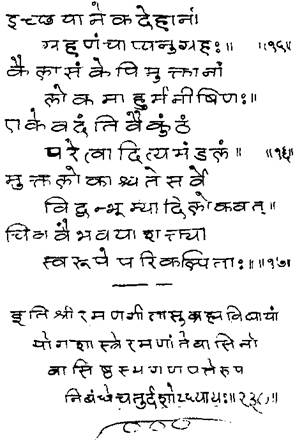 इच्छयानेकदेहानां
ग्रहणंचाप्यनुग्रहः॥ ॥१५॥
कैलासं केपि मुक्तानां
लोकमाहुर्मनीषिणः॥
एके वदंति वैकुंठं
परेत्वादित्यमंडलं॥ ॥१६॥
मुक्तलोकाश्चतेसर्वे
विद्वन्भूम्यादिलोकवत्।
चित्रवैभवयाशक्त्या
स्वरूपेपरिकल्पिताः॥ ॥१७॥
इति श्रीरमणगीतासुब्रह्मविद्यायां
योगशास्त्रेरमणांतेवासिनो
वासिष्ठस्यगणपतेरुप
निबंधेचतुर्दशोऽध्यायः॥